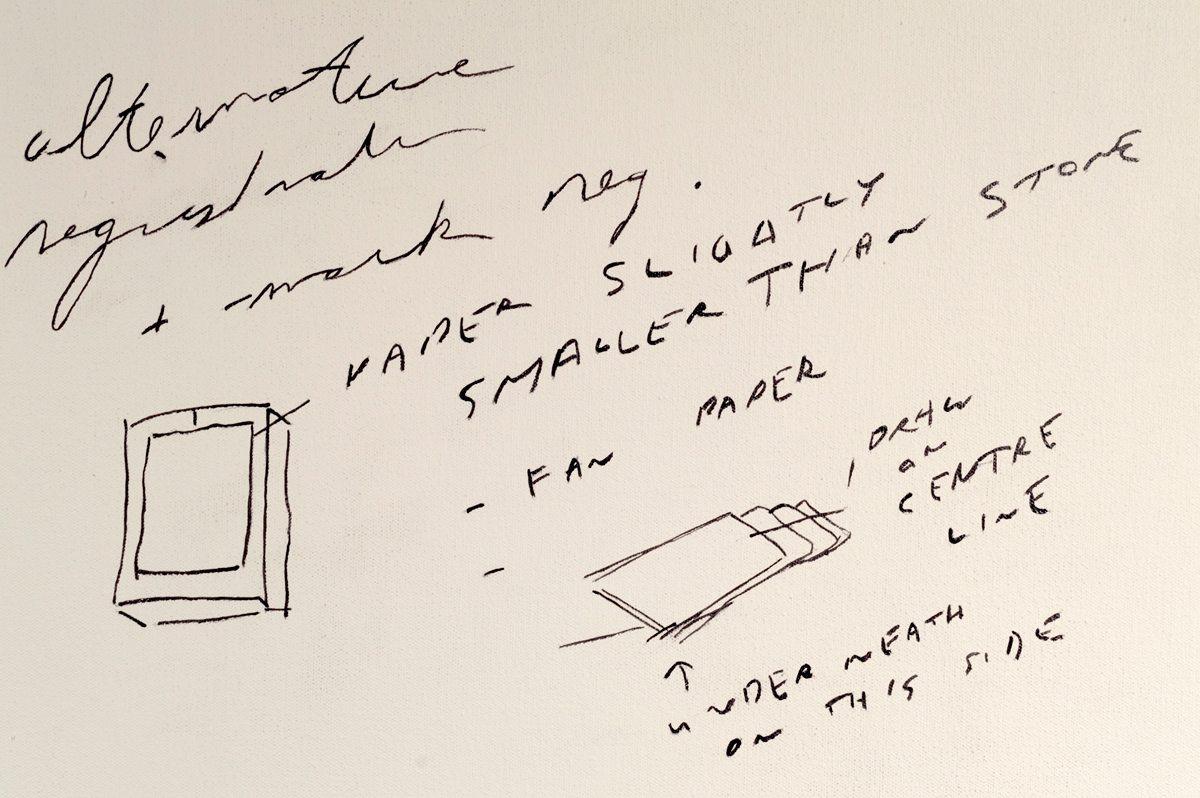 alternative
registration
+ mark reg.
PAPER SLIGHTLY
SMALLER THAN STONE
- FAN PAPER
-
DRAW
ON
CENTRE
LINE
↑
UNDERNEATH
ON THIS SIDE